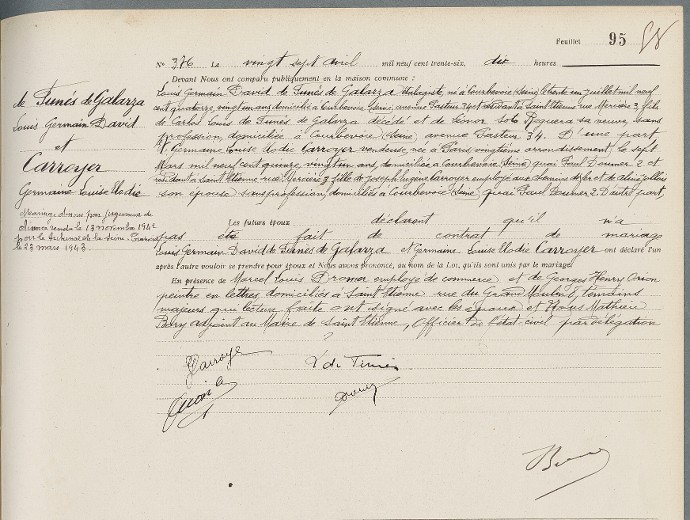 Feuillet 95 58
N° 376 Le vingt sept avril mil neuf cent trente-six, dix heures
Devant Nous ont comparu publiquement en la maison commune :
de Funés de Galarza
Louis Germain David
et
Carroyer
Germaine Louise Elodie
Mariage dissous par jugement de
divorce rendu le 13 novembre 1942
par le tribunal de la Seine.
le 23 mars 1943.
Louis Germain David de Funés de Galarza né à Courbevoie (Seine) le trente et un juillet mil neuf
cent quatorze, vingt un ans, domicilié à Courbevoie Seine, avenue Pasteur 34 et résidant à Saint Etienne rue Mercière 3, fils
de Carlos Louis de Funés de Galarza décédé et de Léonor Soto Reguera sa veuve, sans
profession, domiciliée à Courbevoie (Seine) avenue Pasteur 34. D'une part
Et Germaine Louise Elodie Carroyer vendeuse, née à Paris, vingtième arrondissement, le sept
Mars mil neuf cent quinze, vingt un ans, domiciliée à Courbevoie (Seine) quai Paul Doumer 2 et
résidant à Saint Etienne rue Mercière 3, fille de Joseph Eugène Carroyer employé aux chemins de fer et de
son épouse, sans profession, domiciliés à Courbevoie (Seine) quai Paul Doumer 2. D'autre part,
Les futurs époux déclarent qu'il n'a
pas été fait de contrat de mariage
Louis Germain David de Funés de Galarza et Germaine Louise Elodie Carroyer ont déclaré l'un
après l'autre vouloir se prendre pour époux et Nous avons prononcé, au nom de la Loi, qu'ils sont unis par le mariage.
En présence de Marcel Louis employé de commerce et de Georges Henry Orion
peintre en lettres domiciliés à Saint Etienne rue du Grand Moulin 6, témoins
majeurs qui lecture faite ont signé avec les époux et Nous Mathieu
Bory adjoint au Maire de Saint Etienne, Officier de l'état-civil par délégation
GCarroyer L de Funès
Orion